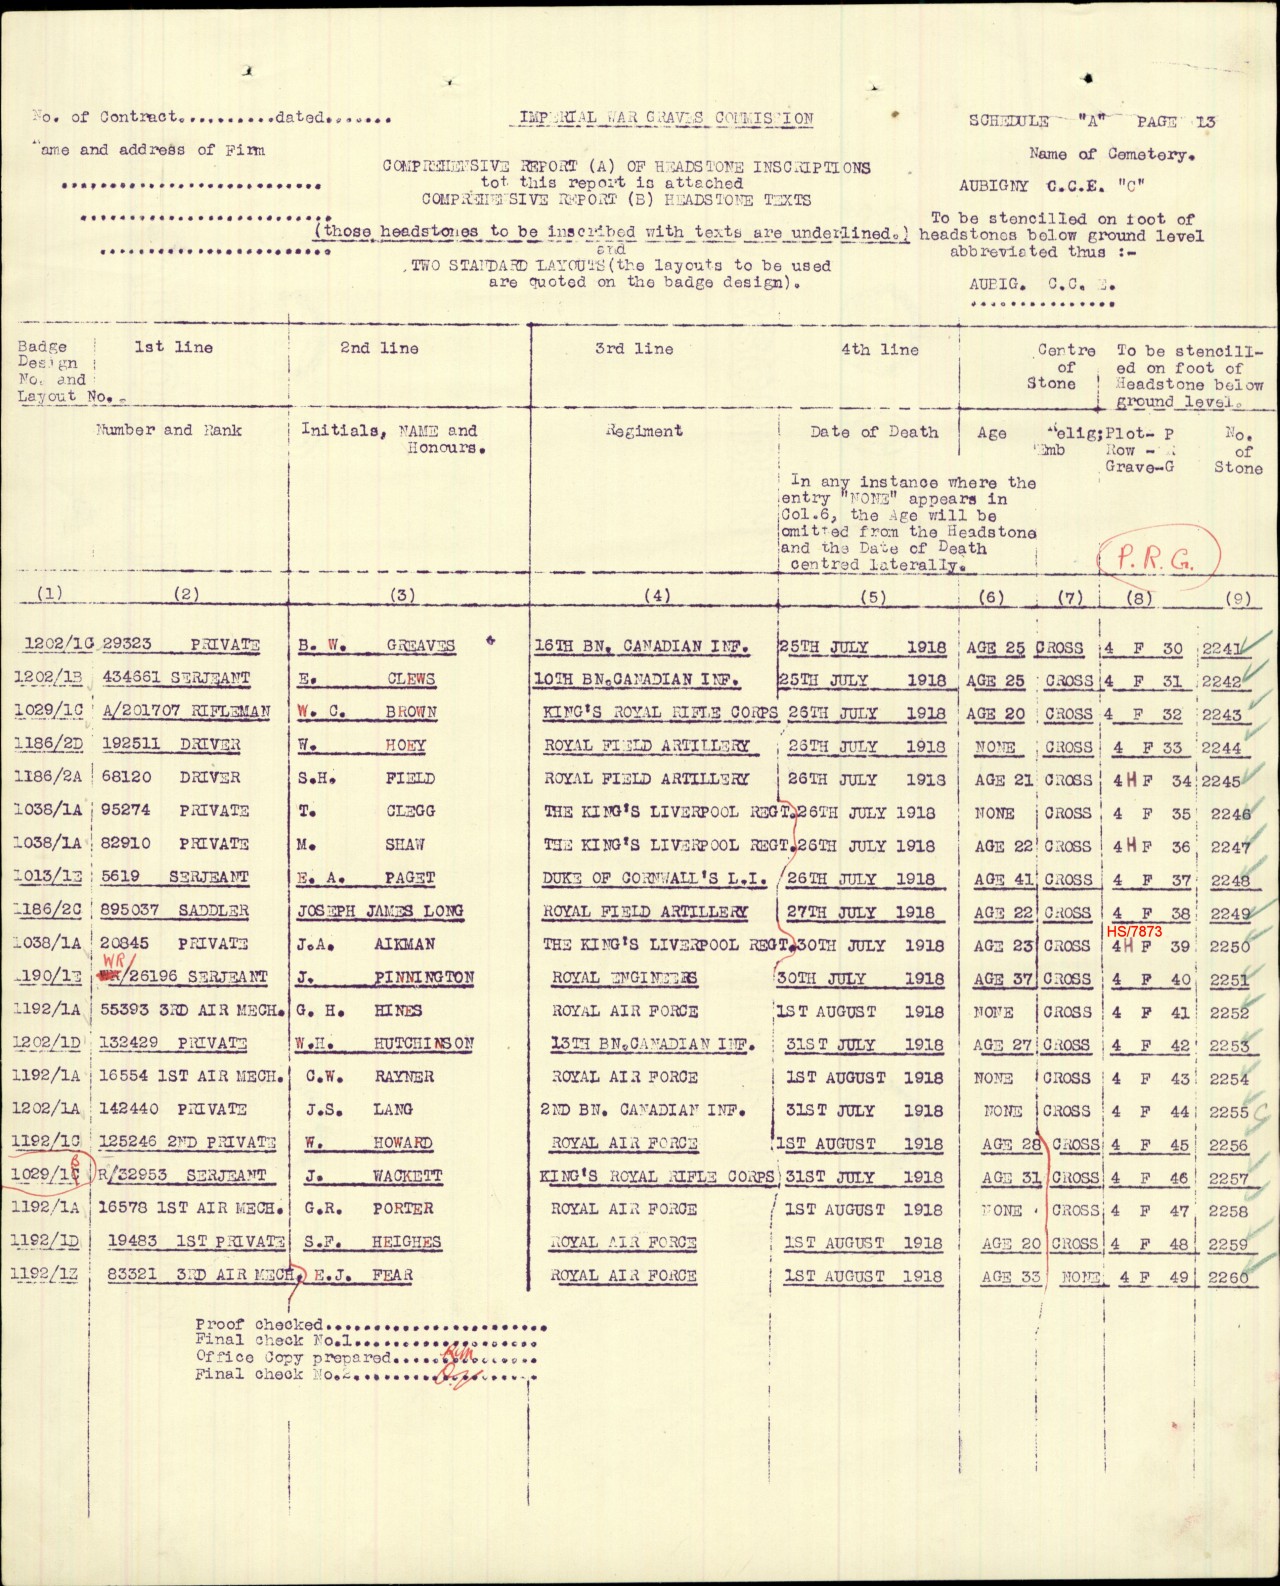 No. of Contract..........dated.......
IMPERIAL WAR GRAVES COMMISSION
SCHEDULE "A" PAGE 13
Name and address of Firm
Name of Cemetery.
COMPREHENSIVE REPORT (A) OF HEADSTONE INSCRIPTIONS
tot this report is attached
AUBIGNY C.C.E. "C"
COMPREHENSIVE REPORT (B) HEADSTONE TEXTS
(those headstones to be inscribed with texts are underlined.)
and
TWO STANDARD LAYOUTS(the layouts to be used
are quoted on the badge design).
To be stencilled on foot of
headstones below ground level
abbreviated thus :-
AUBIG. C.C. E.
Badge Design No. and Layout No.
1st line
2nd line
3rd line
4th line
Centre of Stone
To be stencilled on foot of Headstone below ground level.
Number and Rank
Initials, NAME and Honours.
Regiment
Date of Death
Age
Relig; Emb
Plot- P Row - R Grave-G
No. of Stone
In any instance where the
entry "NONE" appears in
Col.6, the Age will be
omitted from the Headstone
and the Date of Death
centred laterally.
P.R.G.
(1) (2) (3) (4) (5) (6) (7) (8) (9)
1202/1C 29323 PRIVATE B. W. GREAVES 16TH BN. CANADIAN INF. 25TH JULY 1918 AGE 25 CROSS 4 F 30 2241
1202/1B 434661 SERJEANT E. CLEWS 10TH BN.CANADIAN INF. 25TH JULY 1918 AGE 25 CROSS 4 F 31 2242
1029/1C A/201707 RIFLEMAN W. C. BROWN KING'S ROYAL RIFLE CORPS 26TH JULY 1918 AGE 20 CROSS 4 F 32 2243
1186/2D 192511 DRIVER W. HOEY ROYAL FIELD ARTILLERY 26TH JULY 1918 NONE CROSS 4 F 33 2244
1186/2A 68120 DRIVER S.H. FIELD ROYAL FIELD ARTILLERY 26TH JULY 1918 AGE 21 CROSS 4 H F 34 2245
1038/1A 95274 PRIVATE T. CLEGG THE KING'S LIVERPOOL REGT. 26TH JULY 1918 NONE CROSS 4 F 35 2246
1038/1A 82910 PRIVATE M. SHAW THE KING'S LIVERPOOL REGT. 26TH JULY 1918 AGE 22 CROSS 4 H F 36 2247
1013/1E 5619 SERJEANT E. A. PAGET DUKE OF CORNWALL'S L.I. 26TH JULY 1918 AGE 41 CROSS 4 F 37 2248
1186/2C 895037 SADDLER JOSEPH JAMES LONG ROYAL FIELD ARTILLERY 27TH JULY 1918 AGE 22 CROSS 4 F 38 2249
HS/7873
1038/1A 20845 PRIVATE J.A. AIKMAN THE KING'S LIVERPOOL REGT. 30TH JULY 1918 AGE 23 CROSS 4 H F 39 2250
WR/
1190/1E /26196 SERJEANT J. PINNINGTON ROYAL ENGINEERS 30TH JULY 1918 AGE 37 CROSS 4 F 40 2251
1192/1A 55393 3RD AIR MECH. G. H. HINES ROYAL AIR FORCE 1ST AUGUST 1918 NONE CROSS 4 F 41 2252
1202/1D 132429 PRIVATE W.H. HUTCHINSON 13TH BN.CANADIAN INF. 31ST JULY 1918 AGE 27 CROSS 4 F 42 2253
1192/1A 16554 1ST AIR MECH. C.W. RAYNER ROYAL AIR FORCE 1ST AUGUST 1918 NONE CROSS 4 F 43 2254
1202/1A 142440 PRIVATE J.S. LANG 2ND BN. CANADIAN INF. 31ST JULY 1918 NONE CROSS 4 F 44 2255
1192/1C 125246 2ND PRIVATE W. HOWARD ROYAL AIR FORCE 1ST AUGUST 1918 AGE 28 CROSS 4 F 45 2256
B
1029/1C R/32953 SERJEANT J. WACKETT KING'S ROYAL RIFLE CORPS 31ST JULY 1918 AGE 31 CROSS 4 F 46 2257
1192/1A 16578 1ST AIR MECH. G.R. PORTER ROYAL AIR FORCE 1ST AUGUST 1918 NONE CROSS 4 F 47 2258
1192/1D 19483 1ST PRIVATE S.F. HEIGHES ROYAL AIR FORCE 1ST AUGUST 1918 AGE 20 CROSS 4 F 48 2259
1192/1Z 83321 3RD AIR MECH. E.J. FEAR ROYAL AIR FORCE 1ST AUGUST 1918 AGE 33 NONE 4 F 49 2260
Proof checked......................
Final check No.1..................
Office Copy prepared..............
Final check No.2..................